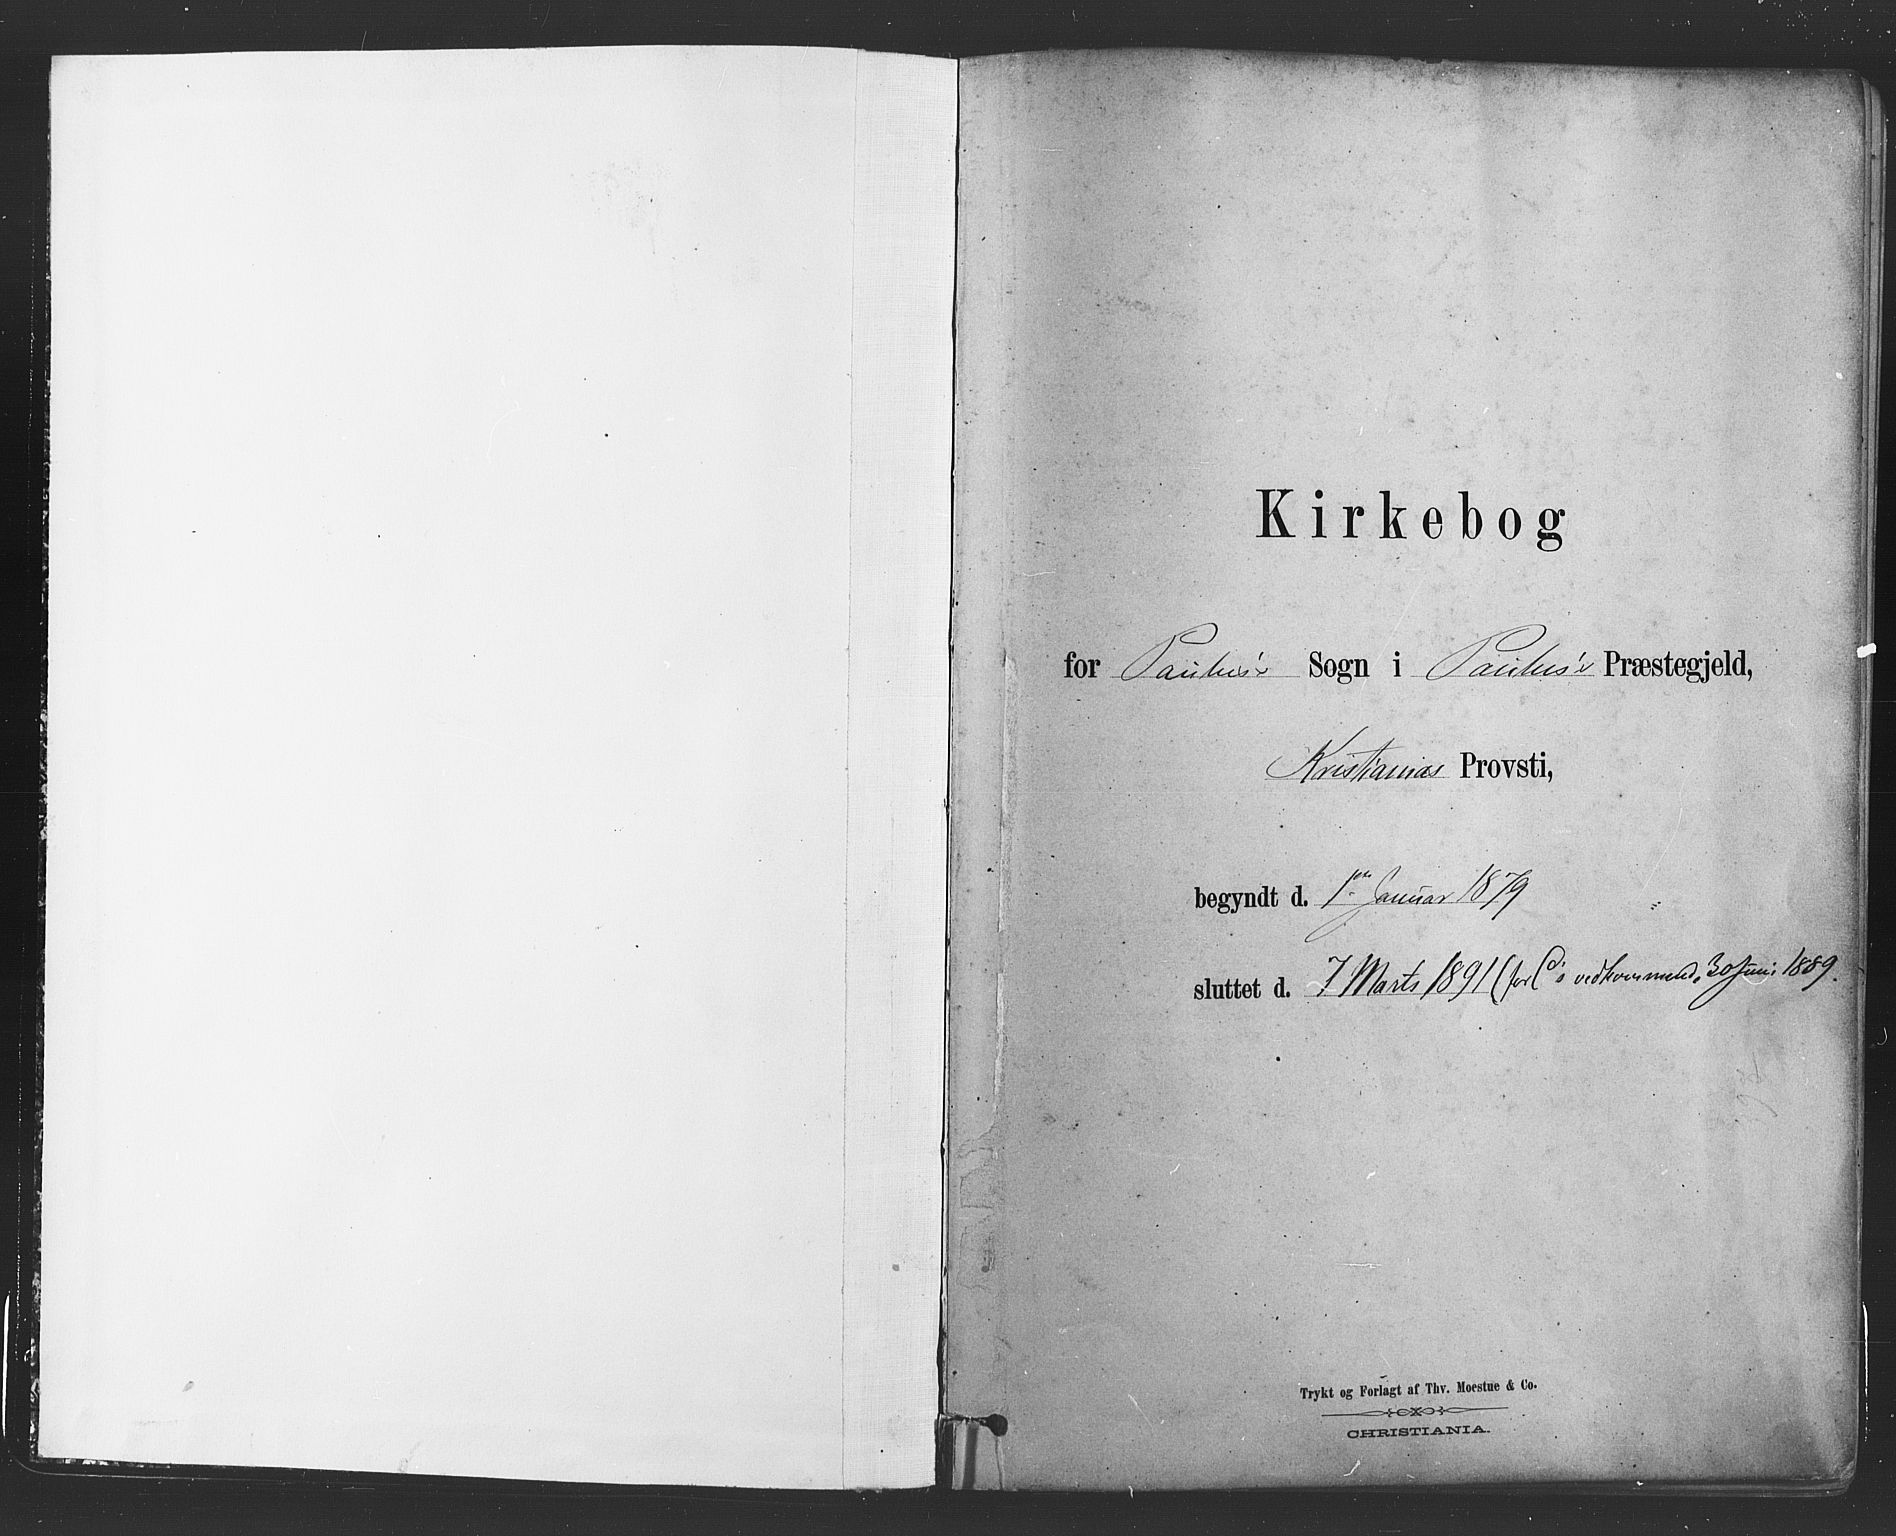 Kirkebog
for Paulus's Sogn i Paulus's Præstegjeld,
Kristianias Provsti,
begyndt d. 1ste Januar 1879
sluttet d. 7 Marts 1891 (for C's vedkommend. 30 Juni 1889.
Trykt og Forlagt af Thv. Moestue & Co.
CHRISTIANIA.